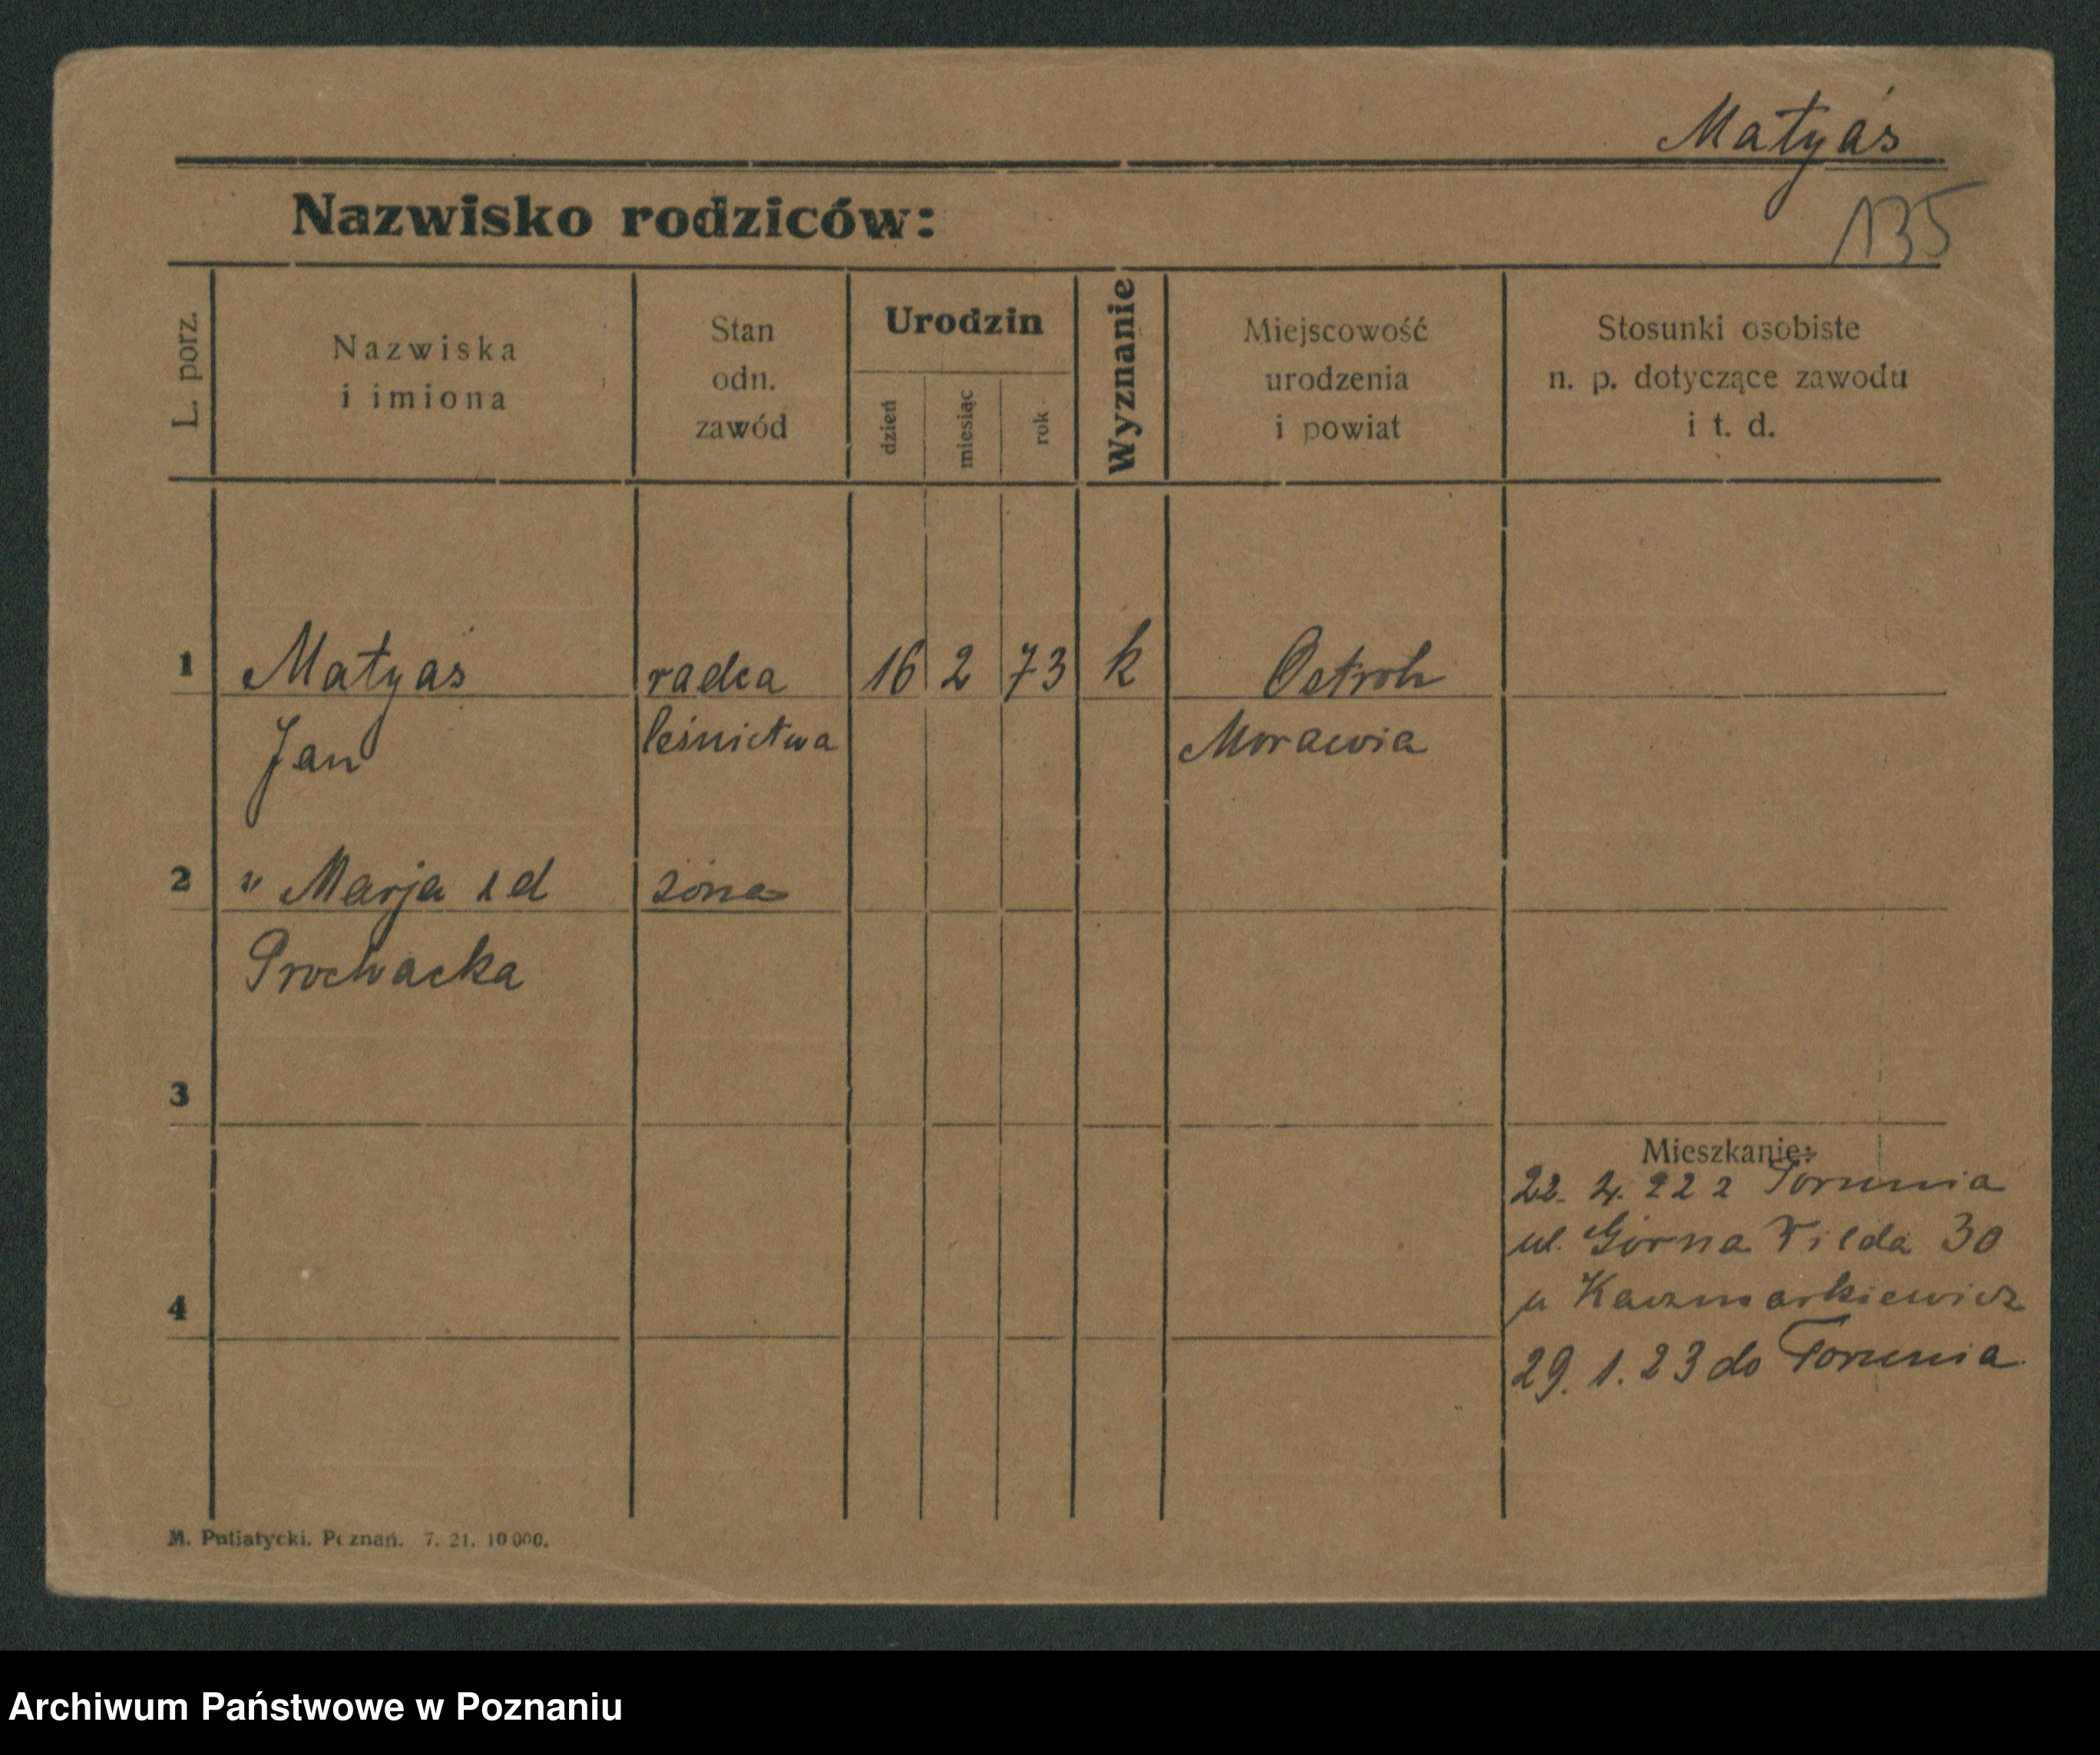 Matyáś
135
Nazwisko rodziców:
L. porz.
Nazwiska
i imiona
Stan
odn.
zawód
Urodzin
dzień
miesiąc
rok
Wyznanie
Miejscowość
urodzenia
i powiat
Stosunki osobiste
n. p. dotyczące zawodu
i t. d.
1 Matyaś radca 16 2 73 k Ostroh
Jan leśnictwa Morawia
2 " Marja z d żona
Prochacka
3
Mieszkanie:
22. 4. 22 z Torunia
ul. Górna Wilda 30
4
u Kaczmarkiewicz
29. 1. 23 do Torunia
M. Putiatycki. Poznań. 7. 21. 10 000.
Archiwum Państwowe w Poznaniu